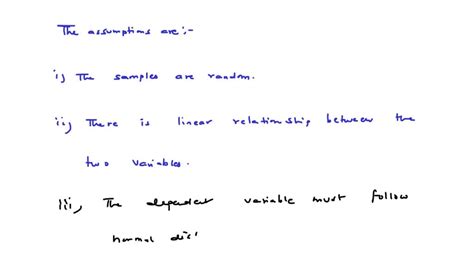 The assumptions are:-
i) The samples are random.
ii) There is linear relationship between the
two variables.
iii) The dependent variable must follow
normal dis'